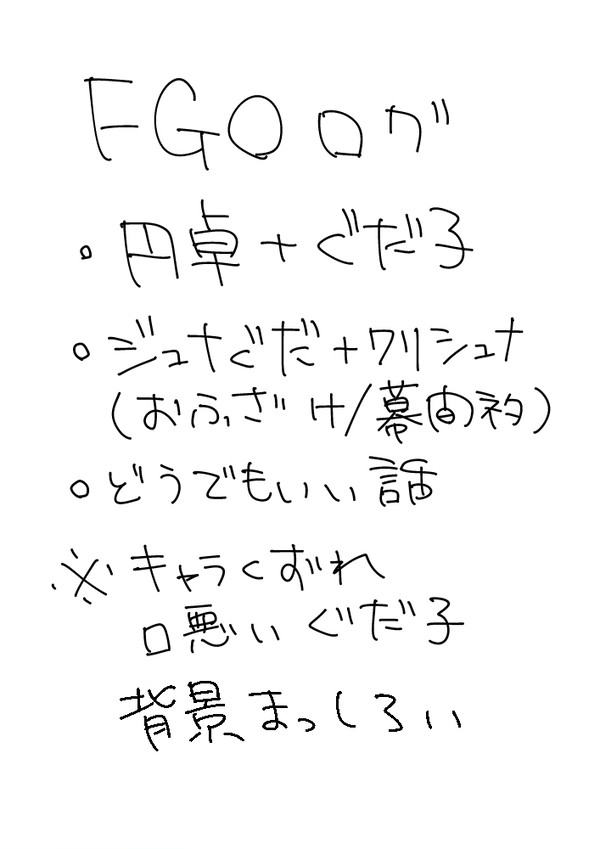 FGOログ
・円卓+ぐだ子
○ジュナぐだ+クリシュナ
(おふざけ/幕間ネタ)
○どうでもいい話
※キャラくずれ
口悪いぐだ子
背景まっしろい